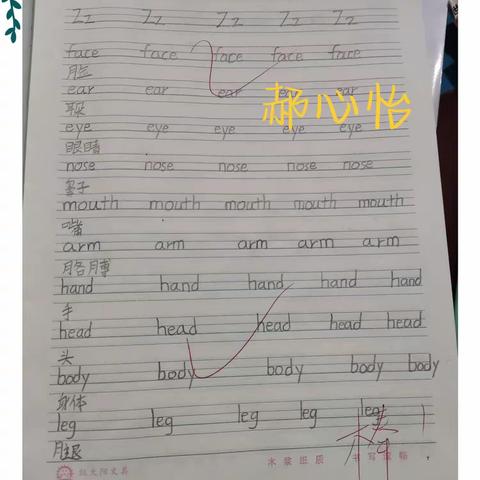 Zz Zz Zz Zz Zz
face face face face face
脸
ear ear ear ear ear
耳朵
郝心怡
eye eye eye eye eye
眼睛
nose nose nose nose nose
鼻子
mouth mouth mouth mouth mouth
嘴
arm arm arm arm arm
胳膊
hand hand hand hand hand
手
head head head head head
头
body body body body body
身体
leg leg leg leg leg
腿
红太阳文具 木浆纸质 书写流畅